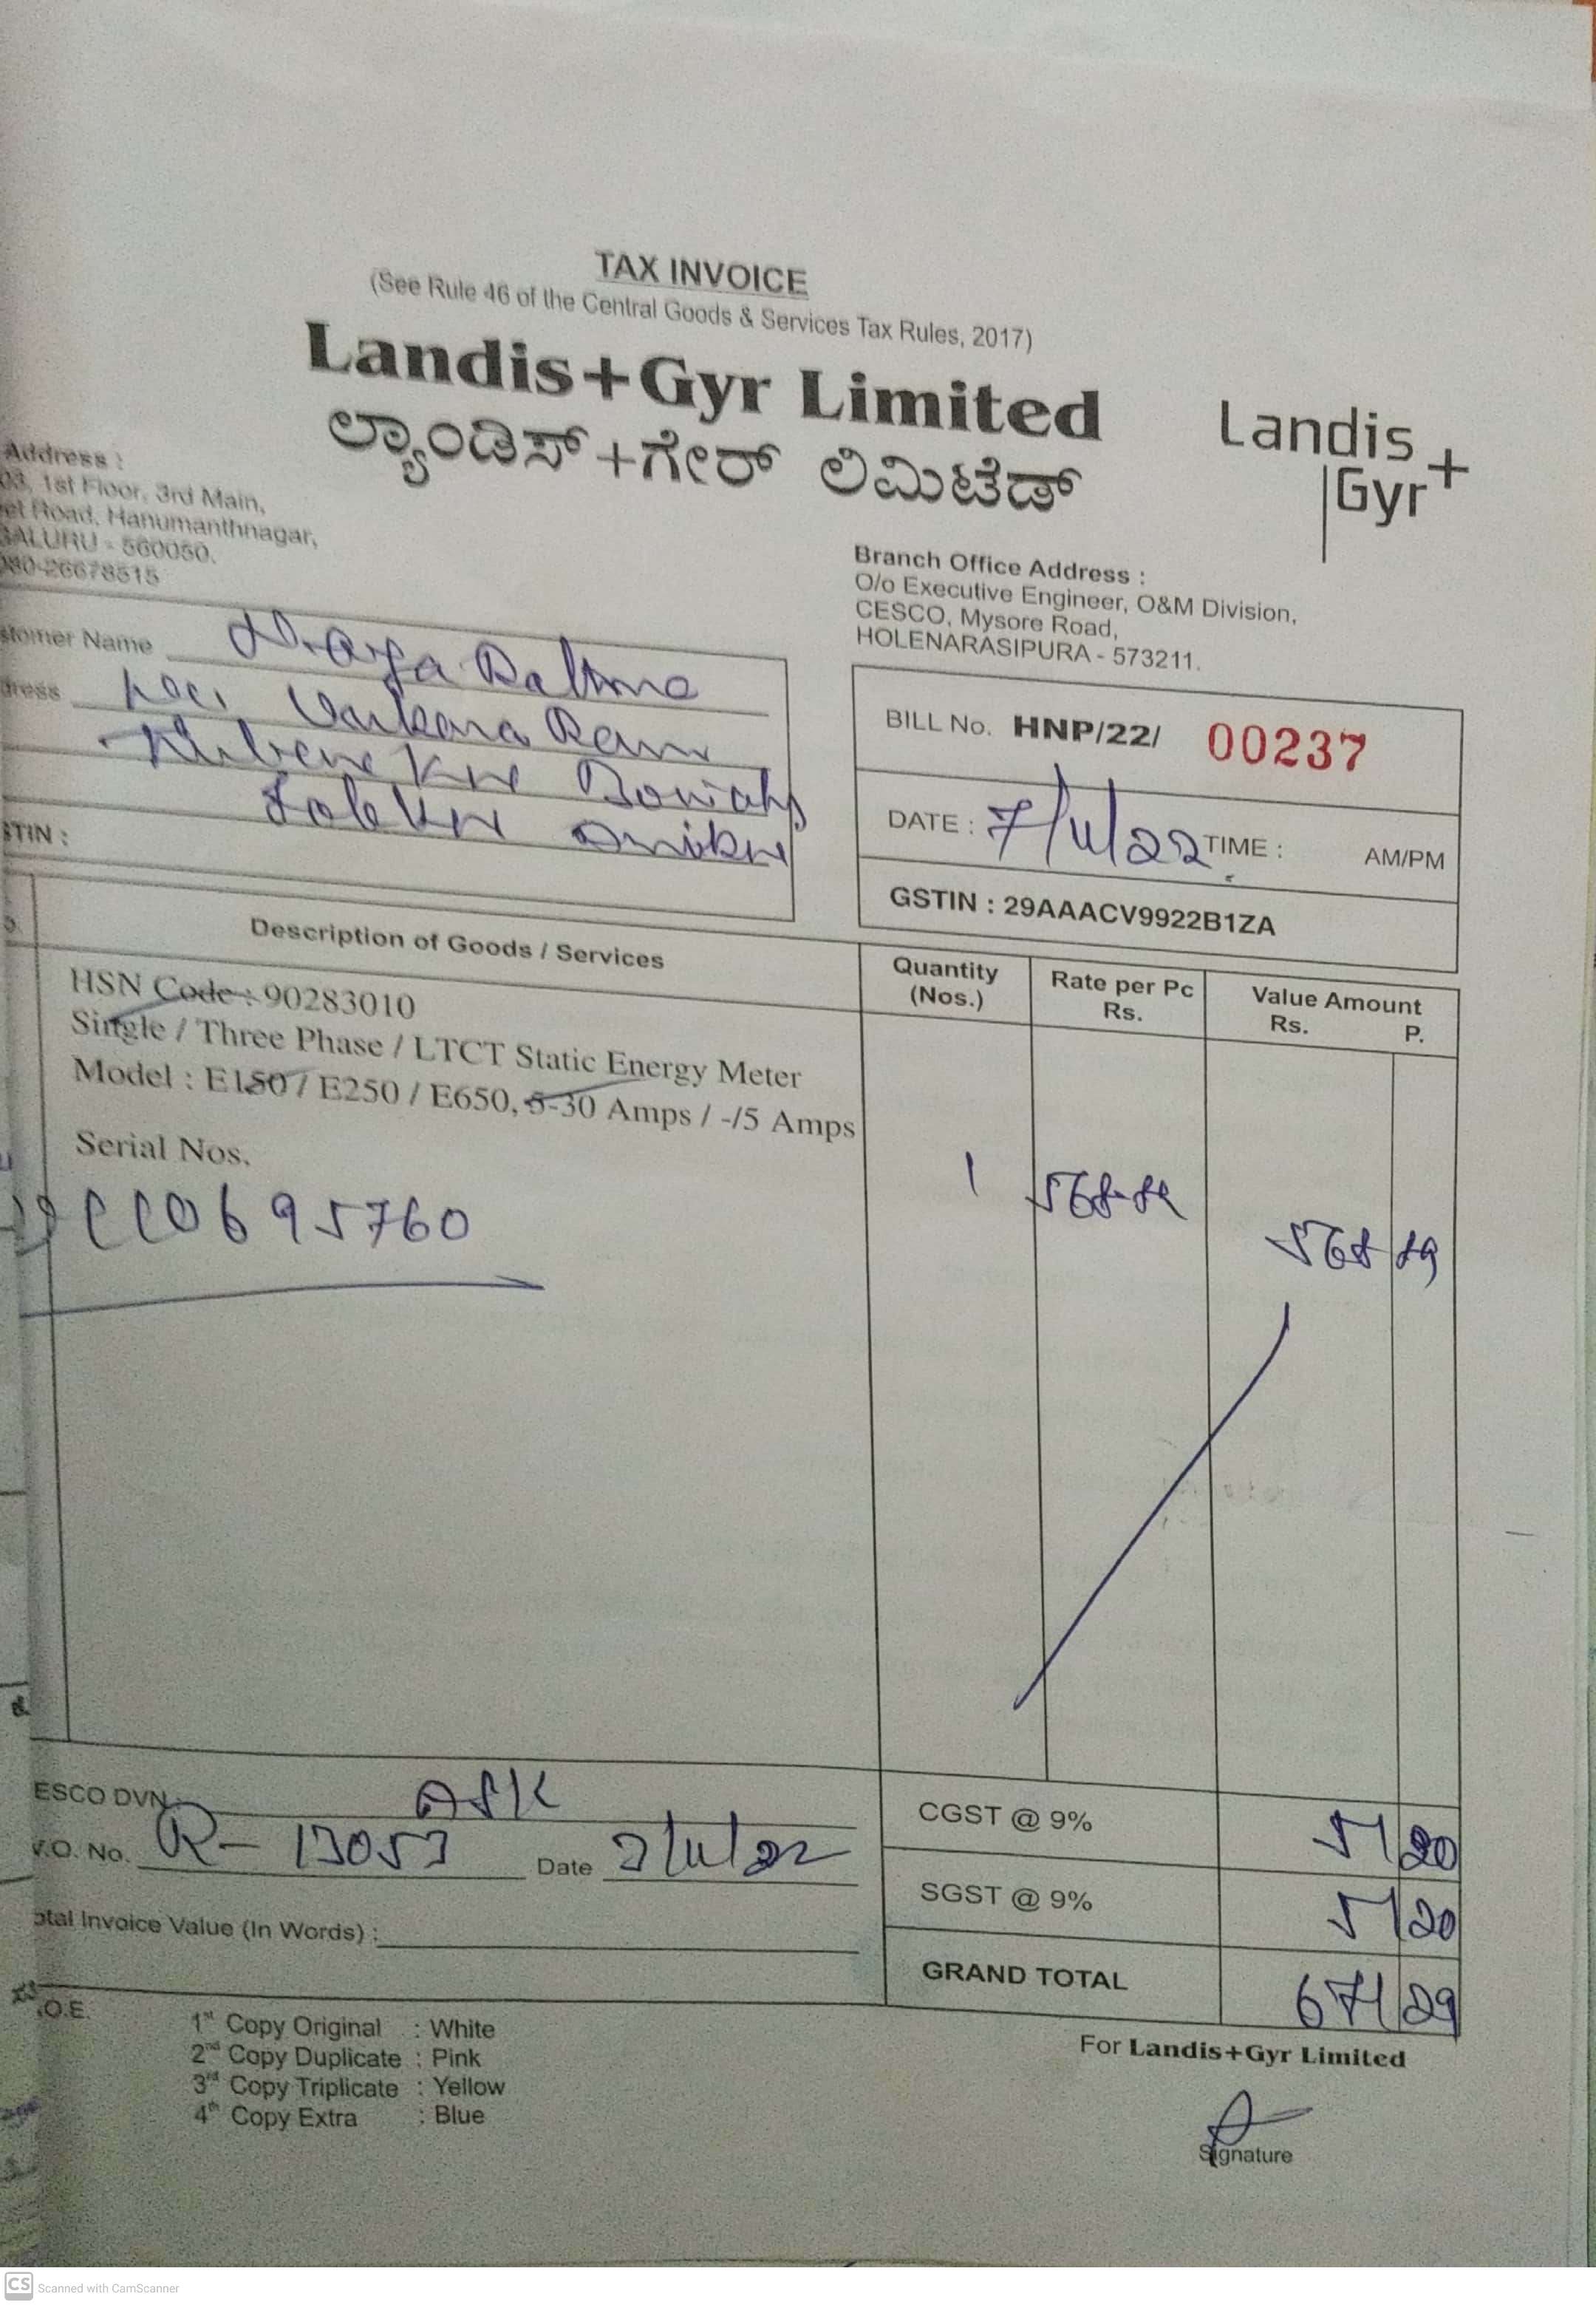 TAX INVOICE
(See Rule 46 of the Central Goods & Services Tax Rules, 2017)
Landis+Gyr Limited
ಲ್ಯಾಂಡಿಸ್+ಗೇರ್ ಲಿಮಿಟೆಡ್
Landis
Gyr+
Address :
03, 1st Floor, 3rd Main,
et Road, Hanumanthnagar,
GALURU - 560050.
080-26678515
Branch Office Address :
O/o Executive Engineer, O&M Division,
CESCO, Mysore Road,
HOLENARASIPURA - 573211.
stomer Name
dress
STIN :
BILL No. HNP/22/ 00237
DATE : 7/11/22 TIME : AM/PM
GSTIN : 29AAACV9922B1ZA
Description of Goods / Services
Quantity (Nos.)
Rate per Pc Rs.
Value Amount Rs. P.
HSN Code : 90283010
Single / Three Phase / LTCT Static Energy Meter
Model : E150 / E250 / E650, 5-30 Amps / -/5 Amps
Serial Nos.
0695760
1 568-89 568 89
ESCO DVN. ASK
V.O. No. R- 13053 Date 7/11/22
otal Invoice Value (In Words) :
CGST @ 9% 51 20
SGST @ 9% 51 20
GRAND TOTAL 671 29
.O.E.
1st Copy Original : White
2nd Copy Duplicate : Pink
3rd Copy Triplicate : Yellow
4th Copy Extra : Blue
For Landis+Gyr Limited
Signature
CS Scanned with CamScanner